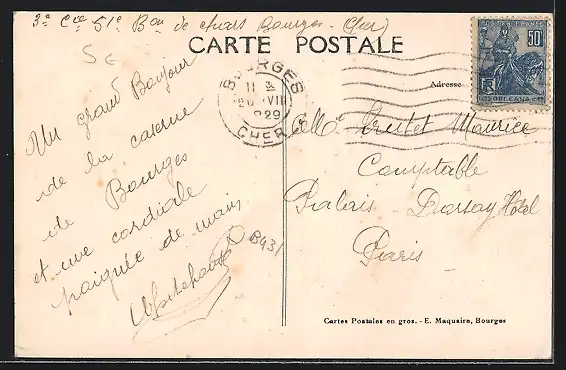 3e Cie 51e Bon de chars Bourges - (Cher)
CARTE POSTALE
5e
Un grand Bonjour
de la caserne
de Bourges
et une cordiale
poignée de main
B431
BOURGES
11 3
20 VIII
1929
CHER
Adresse
50c
ORLEANS
Mr Maurice
Comptable
Palais - Dorsay Hôtel
Paris
Cartes Postales en gros. - E. Maquaire, Bourges